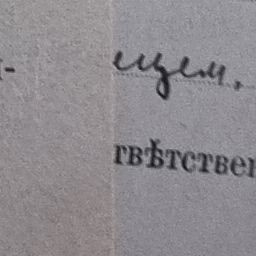 ецем,
твѣтствен